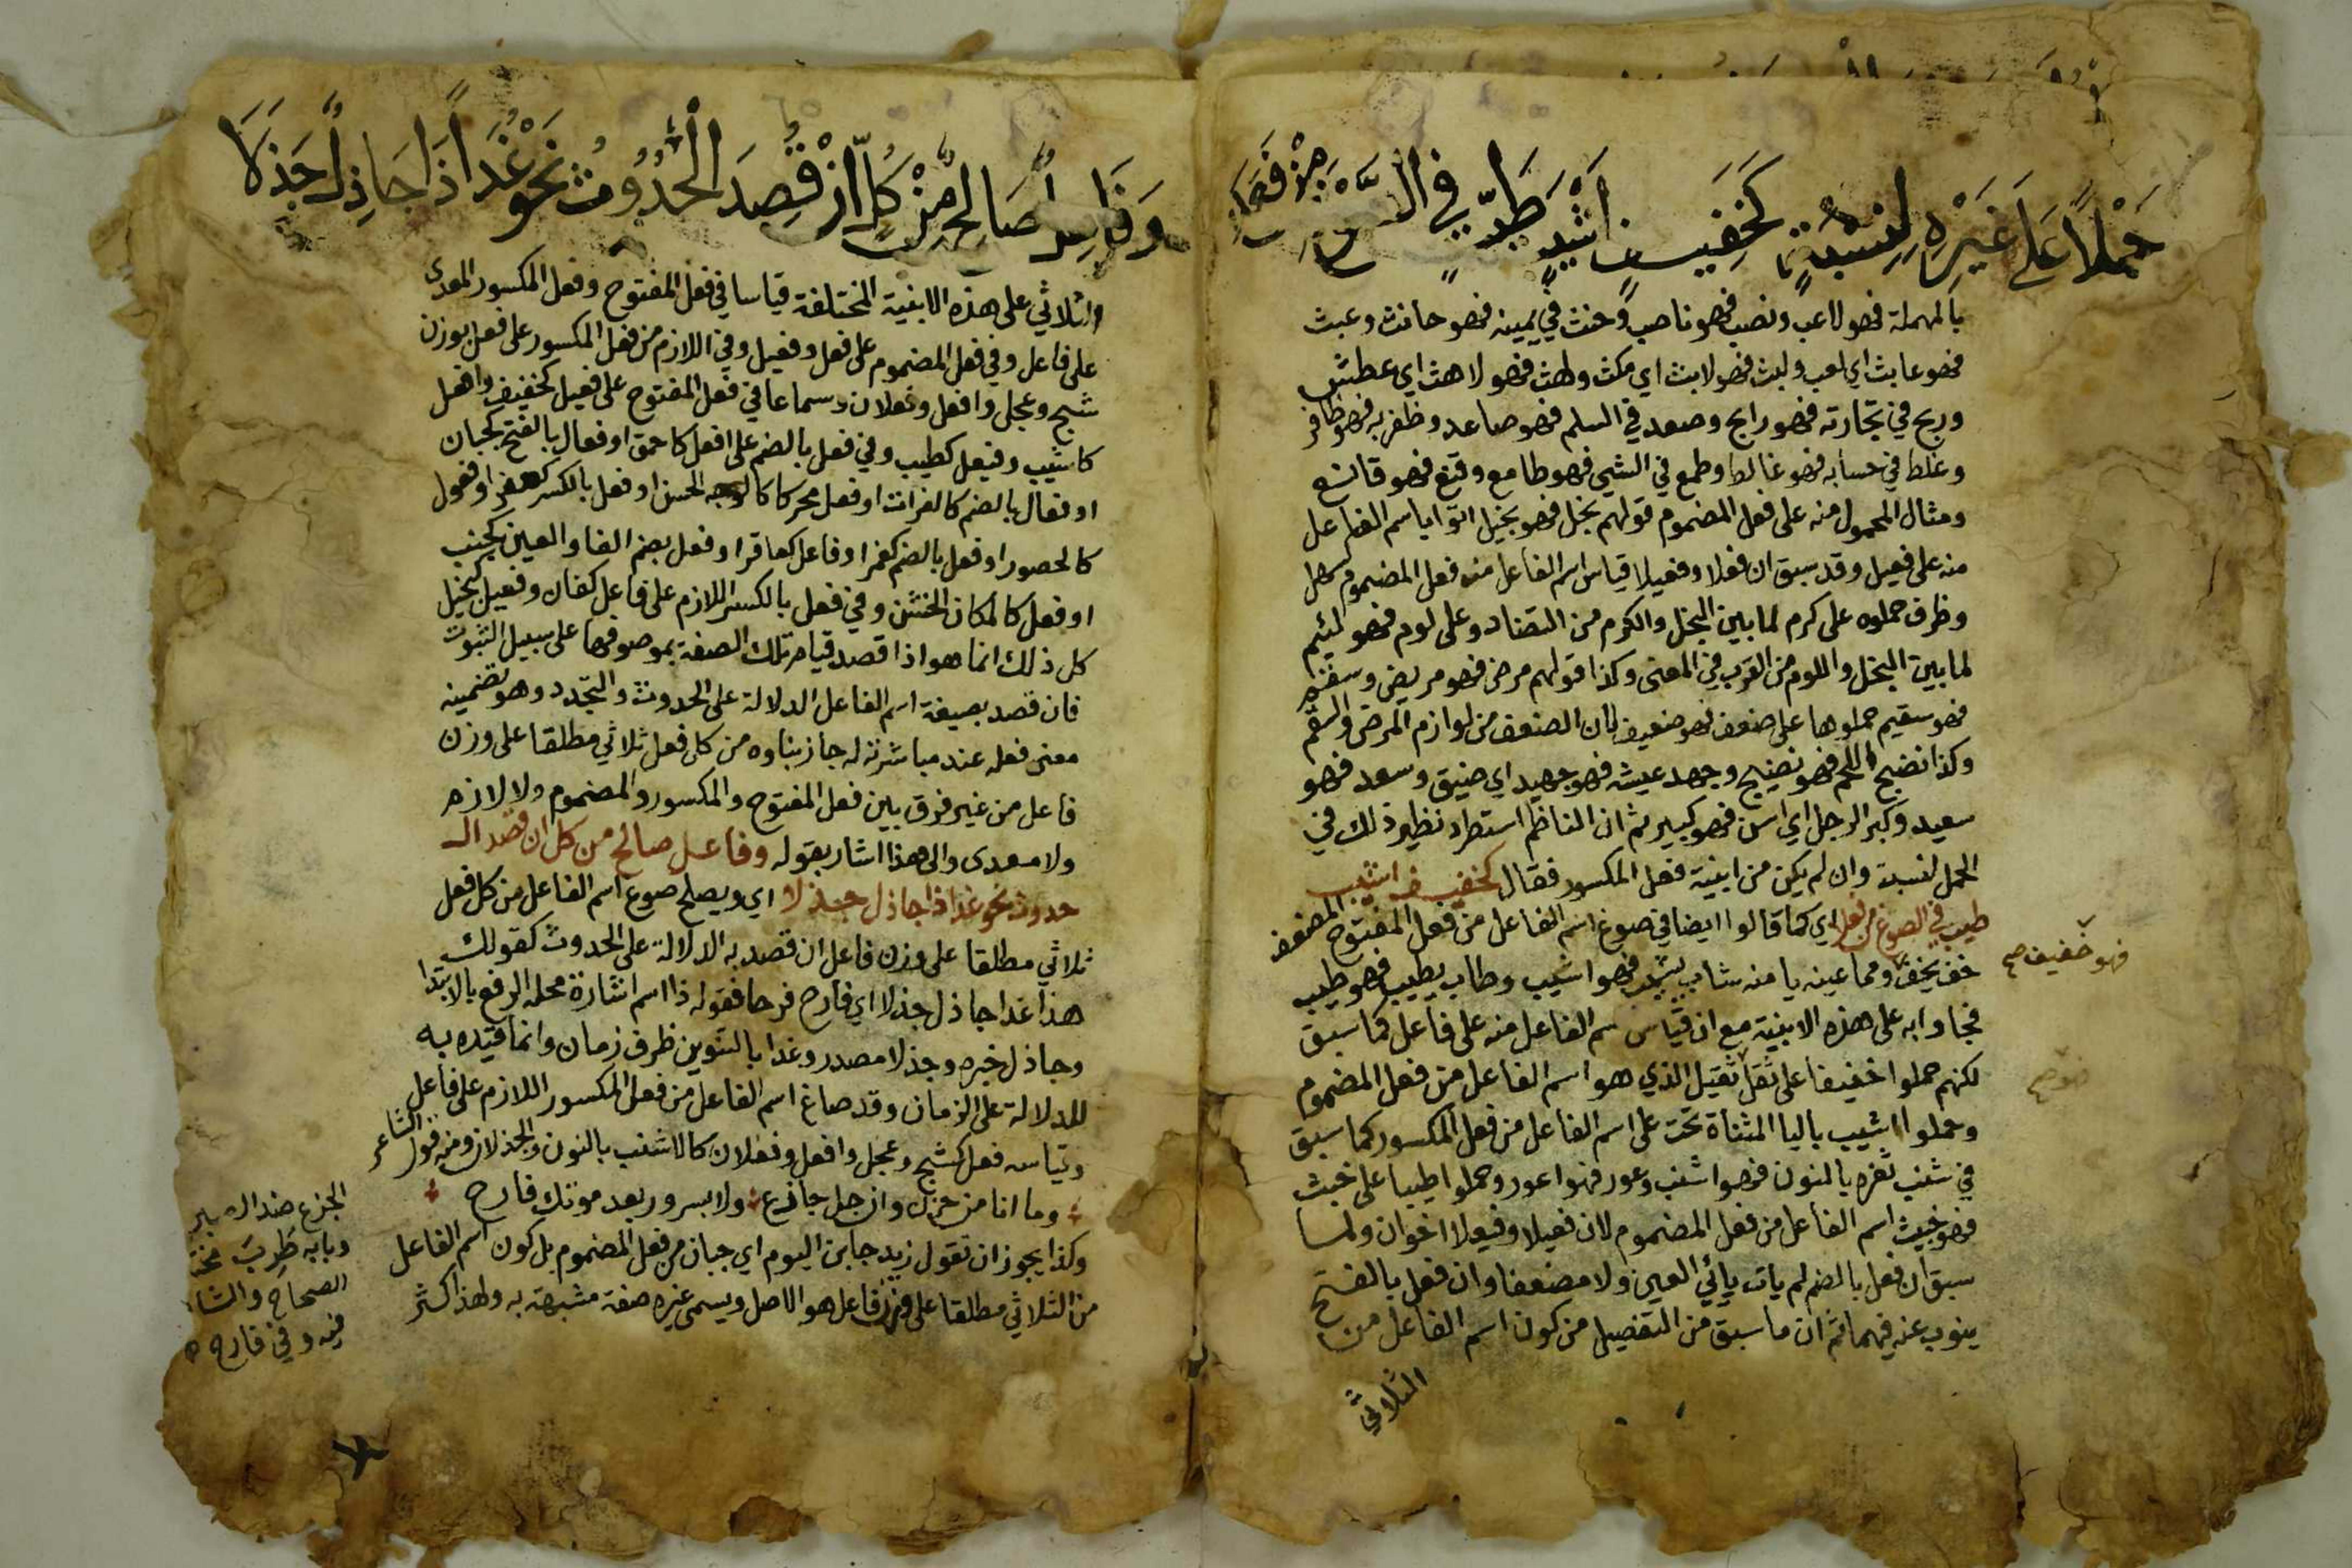 حَمْلًا عَلَى غَيْرِهِ لِنِسْبَةٍ كَخَفِيفٍ اَشْيَبٍ طَيِّبٍ في
بالمهملة فهو لاعب ونصب فهو ناصب وحنث في يمينه فهو حانث وعبث
فهو عابث اي لعب ولبث فهو لابث اي مكث ولهث فهو لاهث اي عطش
وربح في تجارته فهو رابح وصعد في السلم فهو صاعد وظفر به فهو ظافر
وغلط في حسابه فهو غالط وطمع في الشي فهو طامع وقنع فهو قانع
ومثال المحمول منه على فعل المضموم قولهم بخل فهو بخيل اتوا باسم الفاعل
منه على فعيل وقد سبق ان فعلا وفعيلا قياس اسم الفاعل من فعل المضموم كسهل
وظرف حملوه على كرم لما بين البخل والكرم من التضاد وعلى لوم فهو لئيم
لما بين البخل واللوم من القرب في المعنى وكذا قولهم مرض فهو مريض وسقم
فهو سقيم حملوها على ضعف فهو ضعيف لان الضعف من لوازم المرض والسقم
وكذا نضج اللحم فهو نضيج وجهد عيشه فهو جهيد اي ضيق وسعد فهو
سعيد وكبر الرجل اي اسن فهو كبير ثم ان الناظم استطرد نظير ذلك في
الحمل لنسبة وان لم يكن من ابنية فعل المكسور فقال كخفيف اشيب
طيب في الصوغ من فعل اي كما قالوا ايضا في صوغ اسم الفاعل من فعل المفتوح المضعف
خف يخف ومما عينه يا منه شاب يشيب فهو اشيب وطاب يطيب فهو طيب
فهو خفيف صح
فجاوا به على هذه الابنية مع ان قياس اسم الفاعل منه على فاعل كما سبق
لكنهم حملوا خفيفا على ثقل ثقيل الذي هو اسم الفاعل من فعل المضموم
وحملوا اشيب باليا المثناة تحت على اسم الفاعل من فعل المكسور كما سبق
في شنب ثغره بالنون فهو اشنب وعور فهو اعور وحملوا طيبا على خبث
فهو خبيث اسم الفاعل من فعل المضموم لان فعيلا وفيعلا اخوان ولما
سبق ان فعل بالضم لم يات يائي العين ولا مضعفا وان فعل بالفتح
ينوب عنه فيهما ثم ان ما سبق من التفصيل من كون اسم الفاعل من
الثلاثي
وَفَاعِلٌ صَالِحٌ مِنْ كُلٍّ اِنْ قُصِدَ الْحُدُوثُ نَحْوُ غَدًا ذَا جَاذِلٌ جَذَلَا
الثلاثي على هذه الابنية المختلفة قياسا في فعل المفتوح وفعل المكسور المعدى
على فاعل وفي فعل المضموم على فعل وفعيل وفي اللازم من فعل المكسور على فعل بوزن
شبح وعجل وافعل وفعلان وسماعا في فعل المفتوح على فعيل كخفيف وافعل
كاشيب وفيعل كطيب وفي فعل بالضم على افعل كاحمق او فعال بالفتح كجبان
او فعال بالضم كالفرات او فعل محركا كالوجه الحسن او فعل بالكسر كعفر او فعول
كالحصور او فعل بالضم كغمر او فاعل كعاقر او فعل بضم الفا والعين كجنب
او فعل كالمكان الخشن وفي فعل بالكسر اللازم على فاعل كفان وفعيل كبخيل
كل ذلك انما هو اذا قصد قيام تلك الصفة بموصوفها على سبيل الثبوت
فان قصد بصيغة اسم الفاعل الدلالة على الحدوث والتجدد وهو تضمينه
معنى فعله عند مباشرته له جاز بناوه من كل فعل ثلاثي مطلقا على وزن
فاعل من غير فرق بين فعل المفتوح والمكسور والمضموم ولا لازم
ولا معدى والى هذا اشار بقوله وفاعل صالح من كل ان قصد الـ
حدوث نحو غدا ذا جاذل جذلا اي ويصلح صوغ اسم الفاعل من كل فعل
ثلاثي مطلقا على وزن فاعل ان قصد به الدلالة على الحدوث كقولك
هذا غدا جاذل جذلا اي فارح فرحا فقوله ذا اسم اشارة محله الرفع بالابتدا
وجاذل خبره وجذلا مصدر وغدا بالتنوين ظرف زمان وانما قيده به
للدلالة على الزمان وقد صاغ اسم الفاعل من فعل المكسور اللازم على فاعل
وقياسه فعل كشبح وعجل وافعل وفعلان كالاشنب بالنون والجذلان ومنه قول الشاعر
وما انا من رزء وان جل جازع ولا بسرور بعد موتك فارح
وكذا يجوز ان تقول زيد جابن اليوم اي جبان من فعل المضموم بل كون اسم الفاعل
من الثلاثي مطلقا على وزن فاعل هو الاصل ويسمى غيره صفة مشبهة به ولهذا كثر
الجزع ضد الصبر
وبابه طَرِبَ
الصحاح
فيه وفي فارح